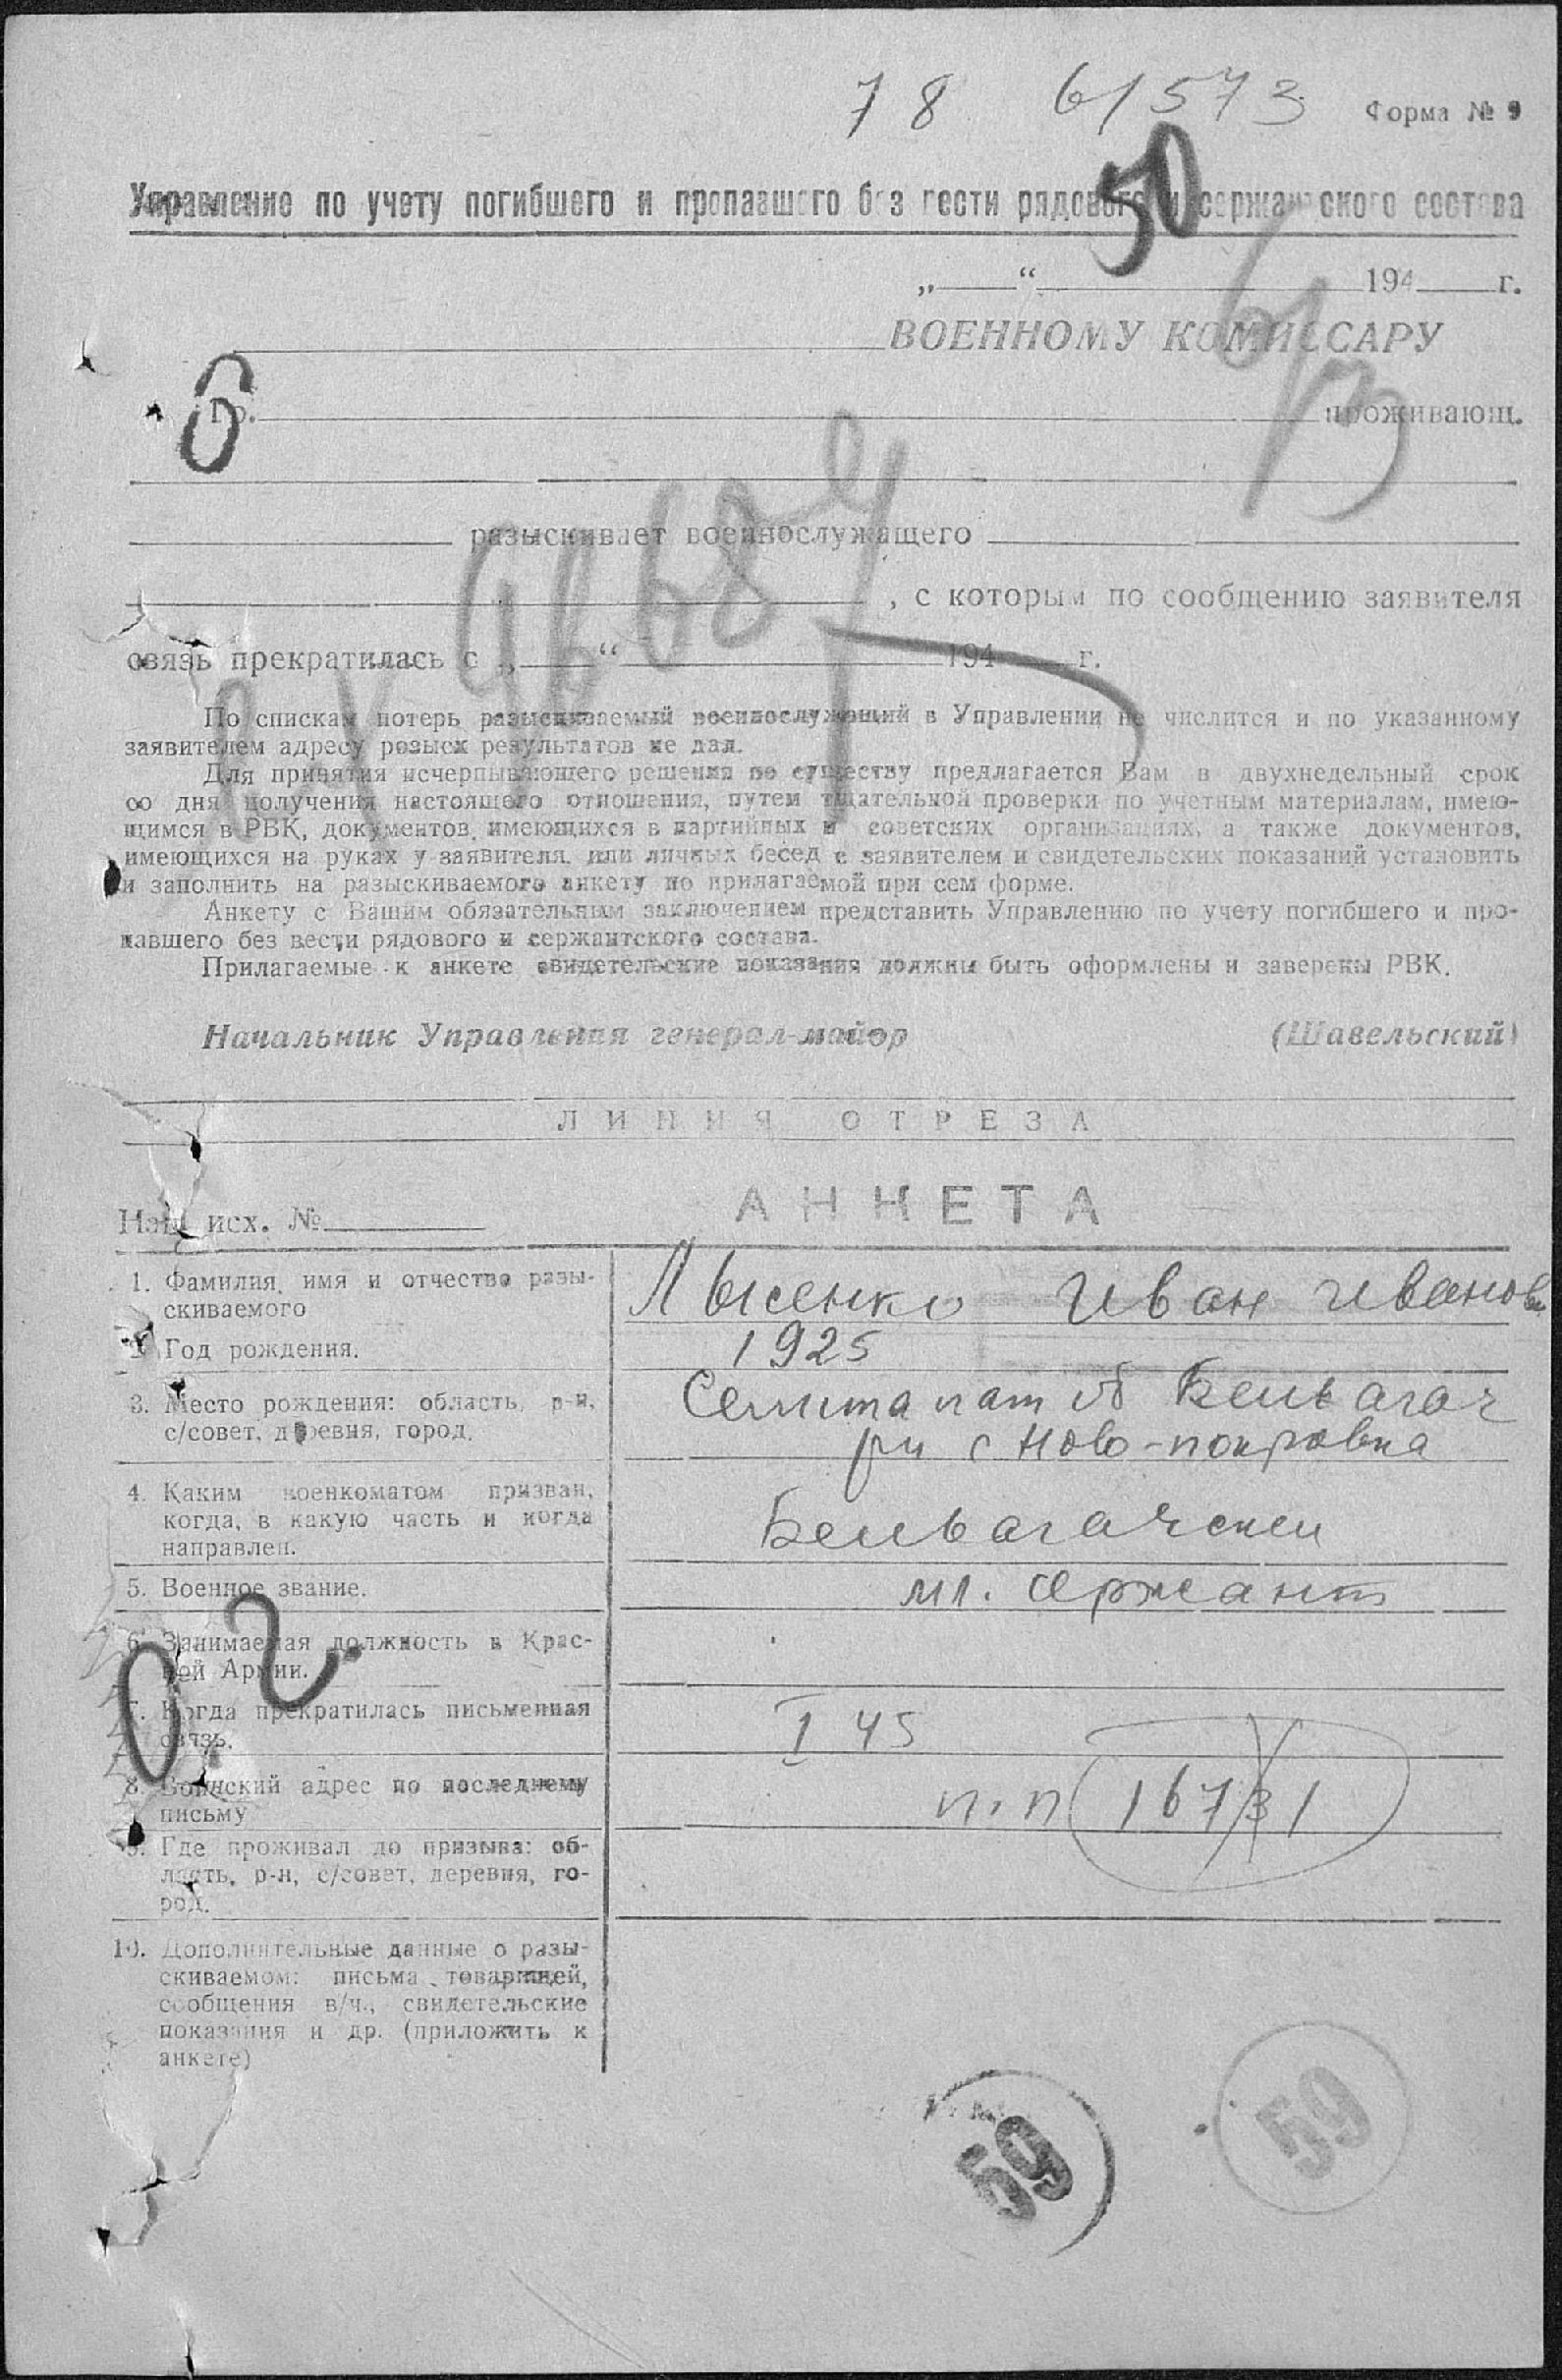 78 61573 Форма № 9
50
Управление по учету погибшего и пропавшего без вести рядового и сержантского состава
„ “ 194 г.
ВОЕННОМУ КОМИССАРУ
б/з
6
Гр. проживающ.
разыскивает военнослужащего
, с которым по сообщению заявителя
связь прекратилась с „ “ 194 г.
вх 9668
По спискам потерь разыскиваемый военнослужащий в Управлении не числится и по указанному
заявителем адресу розыск результатов не дал.
Для принятия исчерпывающего решения по существу предлагается Вам в двухнедельный срок
со дня получения настоящего отношения, путем тщательной проверки по учетным материалам, имею-
щимся в РВК, документов, имеющихся в партийных и советских организациях, а также документов,
имеющихся на руках у заявителя, или личных бесед с заявителем и свидетельских показаний установить
и заполнить на разыскиваемого анкету по прилагаемой при сем форме.
Анкету с Вашим обязательным заключением представить Управлению по учету погибшего и про-
павшего без вести рядового и сержантского состава.
Прилагаемые к анкете свидетельские показания должны быть оформлены и заверены РВК.
Начальник Управления генерал-майор (Шавельский)
ЛИНИЯ ОТРЕЗА
АНКЕТА
Наш исх. №
1. Фамилия, имя и отчество разы-
скиваемого
Лысенко Иван Иванов
2. Год рождения.
1925
3. Место рождения: область, р-н,
с/совет, деревня, город.
Семипалат об Бельагач
рн с Ново-покровка
4. Каким военкоматом призван,
когда, в какую часть и когда
направлен.
Бельагачским
5. Военное звание.
мл. сержант
6. Занимаемая должность в Крас-
ной Армии.
7. Когда прекратилась письменная
связь.
I 45
8. Воинский адрес по последнему
письму
п.п 16731
9. Где проживал до призыва: об-
ласть, р-н, с/совет, деревня, го-
род.
10. Дополнительные данные о разы-
скиваемом: письма товарищей,
сообщения в/ч., свидетельские
показания и др. (приложить к
анкете)
59
59